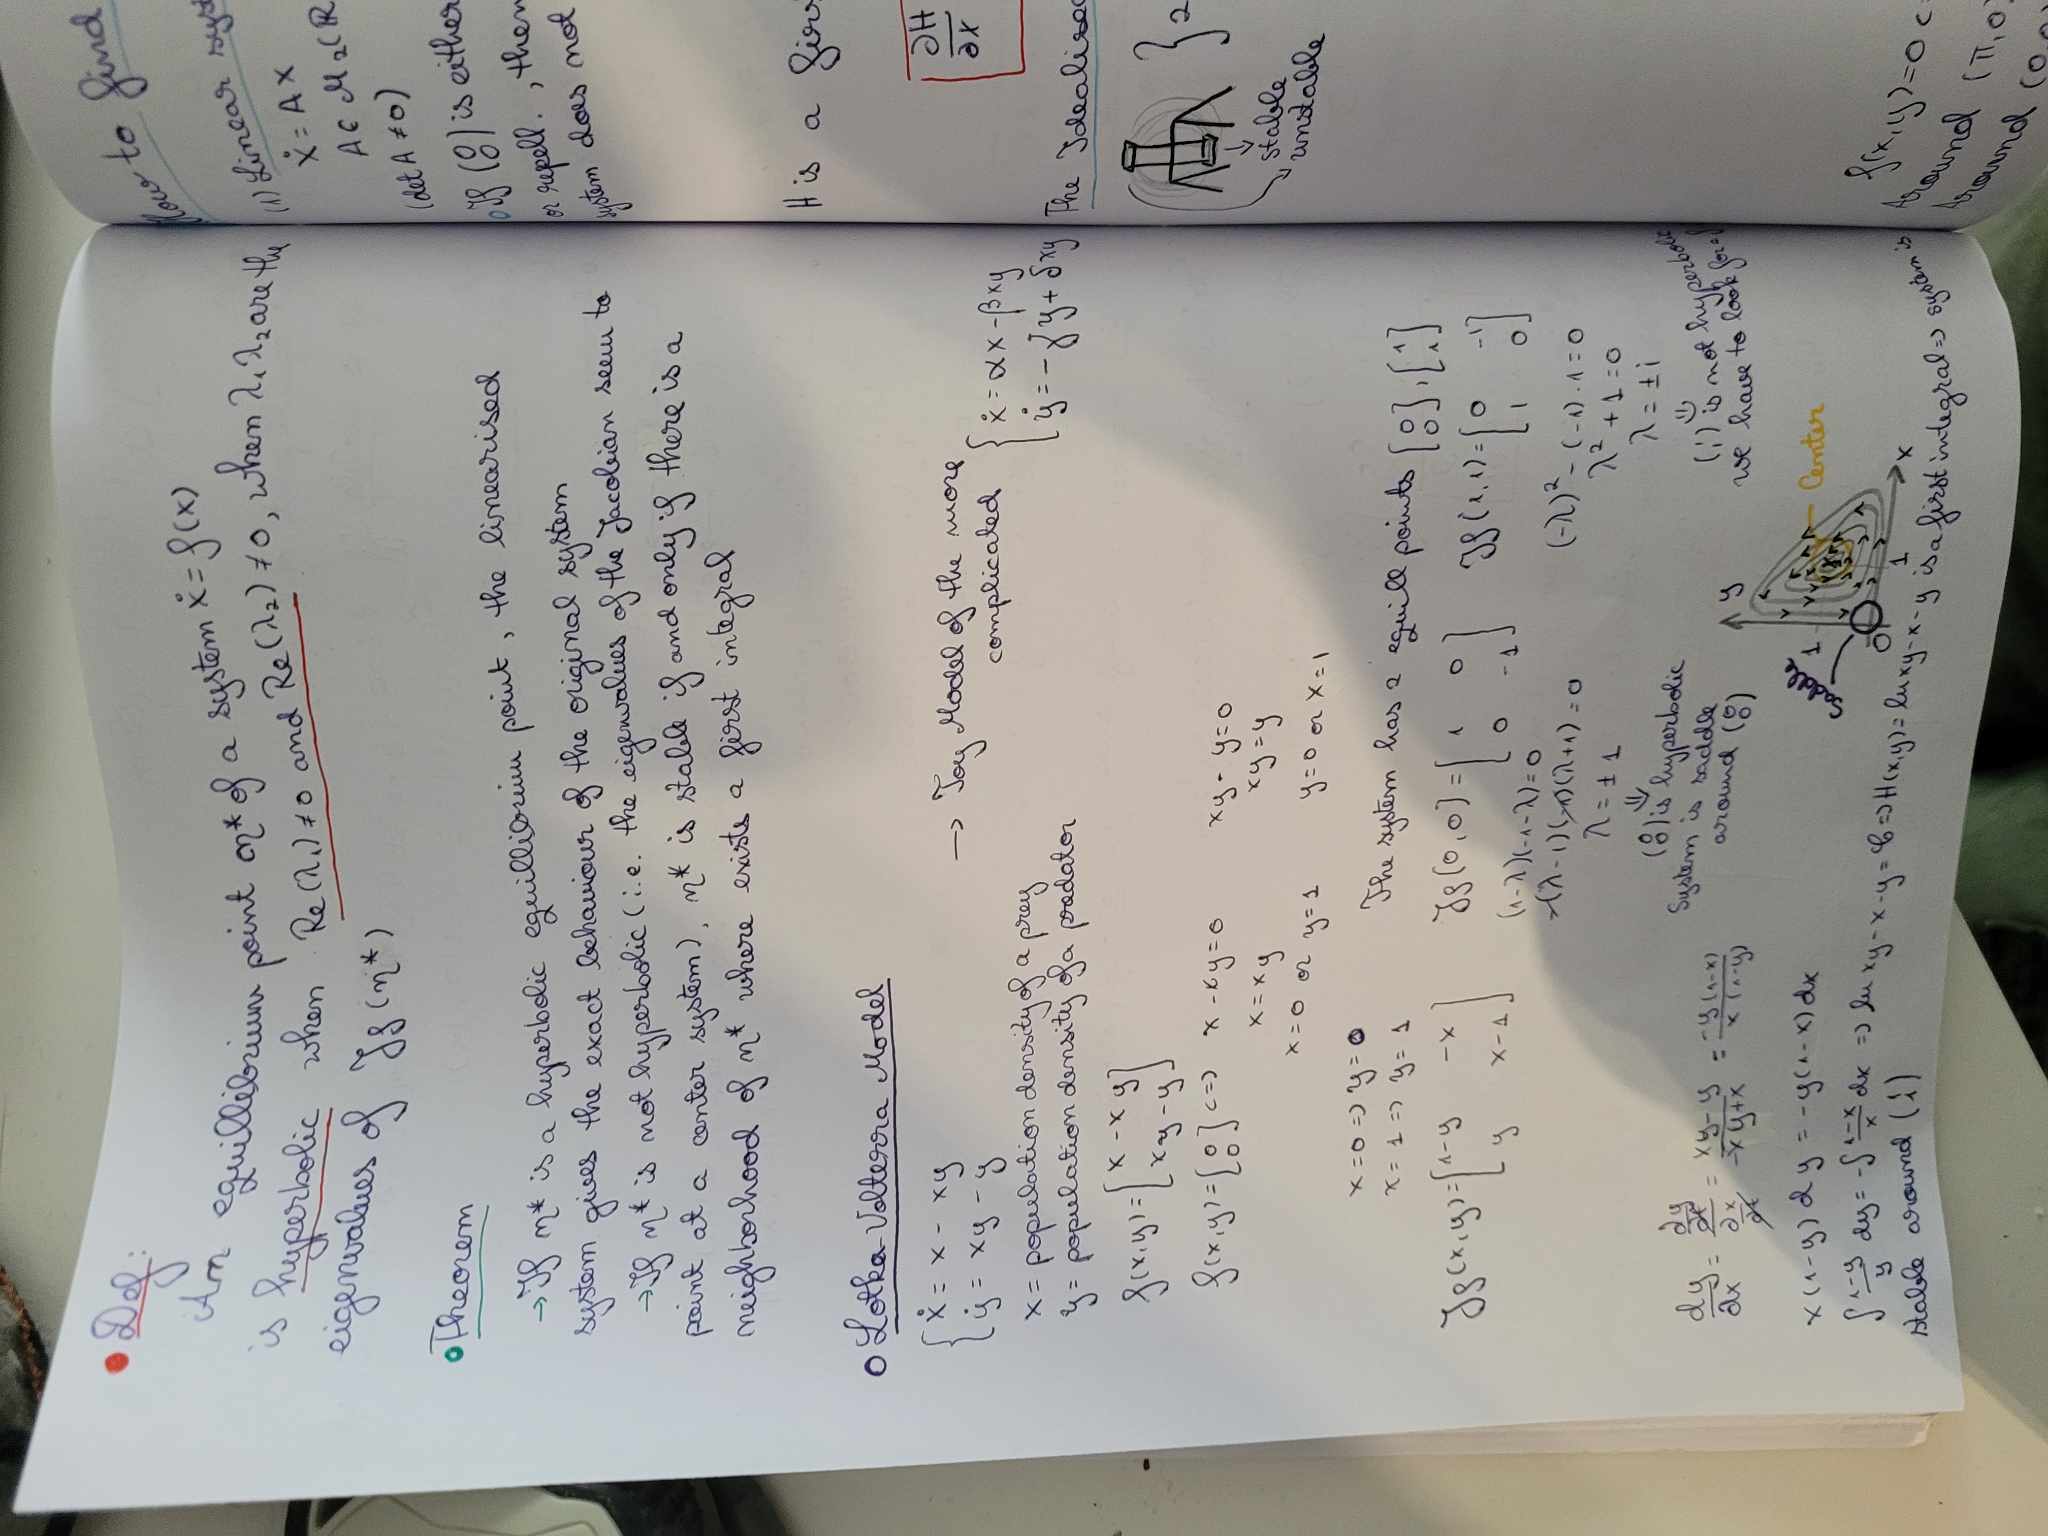 • Def:
An equillibrium point η* of a system ẋ = f(x)
is hyperbolic when Re(λ₁) ≠ 0 and Re(λ₂) ≠ 0, when λ₁ λ₂ are the
eigenvalues of Jf(η*)
• Theorem
→ If η* is a hyperbolic equillibrium point, the linearised
system gives the exact behaviour of the original system
→ If η* is not hyperbolic (i.e. the eigenvalues of the Jacobian seem to
point at a center system), η* is stable if and only if there is a
neighborhood of η* where exists a first integral
○ Lotka-Volterra Model
→ Toy Model of the more
complicated
{ ẋ = αx - βxy
ẏ = -γy + δxy
{ ẋ = x - xy
ẏ = xy - y
x = population density of a prey
y = population density of a predator
f(x,y) = [x - xy
xy - y]
f(x,y) = [0 0] <=> x - xy = 0
xy - y = 0
x = xy
xy = y
x = 0 or y = 1
y = 0 or x = 1
x = 0 => y = 0
x = 1 => y = 1
The system has 2 equill points [0 0], [1 1]
Jf(x,y) = [1-y -x
y x-1]
Jf(0,0) = [1 0
0 -1]
(1-λ)(-1-λ) = 0
λ = ±1
⇓
(0 0) is hyperbolic
System is saddle
around (0 0)
Jf(1,1) = [0 -1
1 0]
(-λ)² - (-1)·1 = 0
λ² + 1 = 0
λ = ±i
⇓
(1 1) is not hyperbolic
we have to look for a f
y
1
saddle
0
1
x
Center
dy/dx = dy/dt / dx/dt = xy-y / -xy+x = -y(1-x) / x(1-y)
x(1-y)dy = -y(1-x)dx
∫ 1-y/y dy = -∫ 1-x/x dx => ln xy - x - y = C => H(x,y) = ln xy - x - y is a first integral => system is
stable around (1 1)
How to find
(1) Linear syst
ẋ = Ax
A ∈ M₂(R
(det A ≠ 0)
○ If (0 0) is either
or repell., then
system does not
H is a firs
∂H
∂x
The Idealised
} 2
stable
unstable
f(x,y) = 0 <
Around (π,0)
Around (0,0)